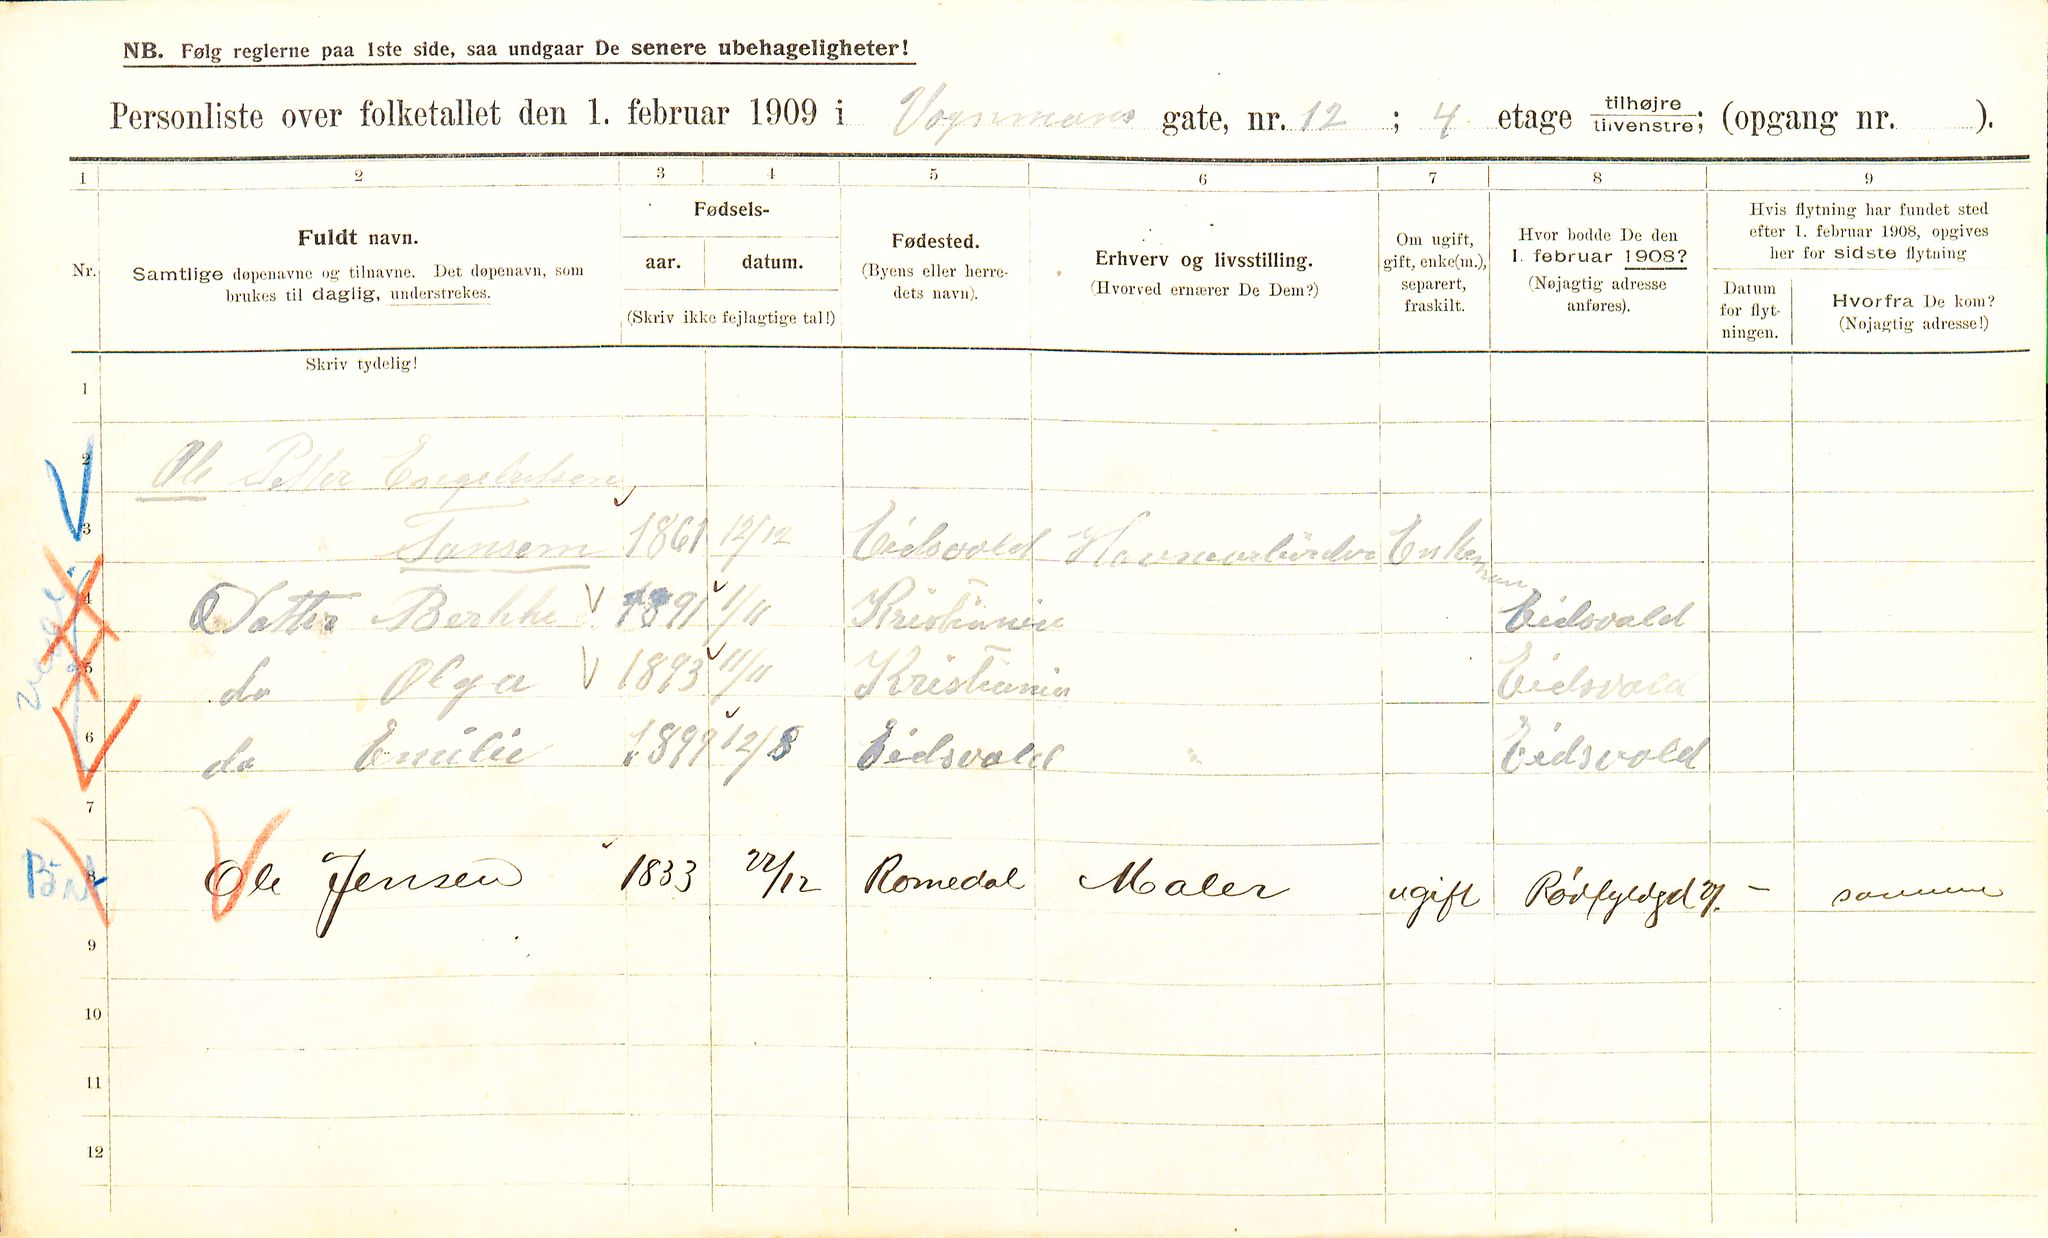 NB. Følg reglerne paa 1ste side, saa undgaar De senere ubehageligheter!
Personliste over folketallet den 1. februar 1909 i Vognmans gate, nr. 12 ; 4 etage tilhøjre / tilvenstre; (opgang nr. ).
1 2 3 4 5 6 7 8 9
Nr.
Fuldt navn.
Samtlige døpenavne og tilnavne. Det døpenavn, som
brukes til daglig, understrekes.
Skriv tydelig!
Fødsels-
aar. datum.
(Skriv ikke fejlagtige tal!)
Fødested.
(Byens eller herre-
dets navn).
Erhverv og livsstilling.
(Hvorved ernærer De Dem?)
Om ugift,
gift, enke(m.),
separert,
fraskilt.
Hvor bodde De den
1. februar 1908?
(Nøjagtig adresse
anføres).
Hvis flytning har fundet sted
efter 1. februar 1908, opgives
her for sidste flytning
Datum
for flyt-
ningen.
Hvorfra De kom?
(Nøjagtig adresse!)
1
2 Ole Petter
3 1861 12/12 Eidsvold Enkeman
4 Datter 1891 1/11 Kristiania Eidsvald
5 do Olga 1893 11/11 Kristiania Eidsvold
6 do Emilie 1899 12/8 Eidsvold Eidsvold
7
8 Ole Jensen 1833 22/12 Romedal Maler ugift – samme
9
10
11
12